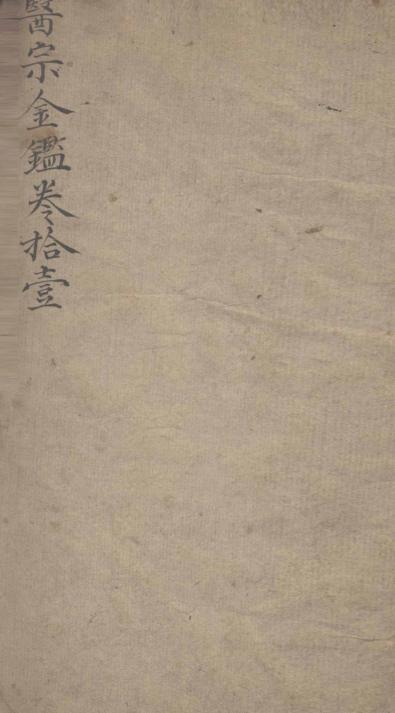 醫宗金鑑卷拾壹